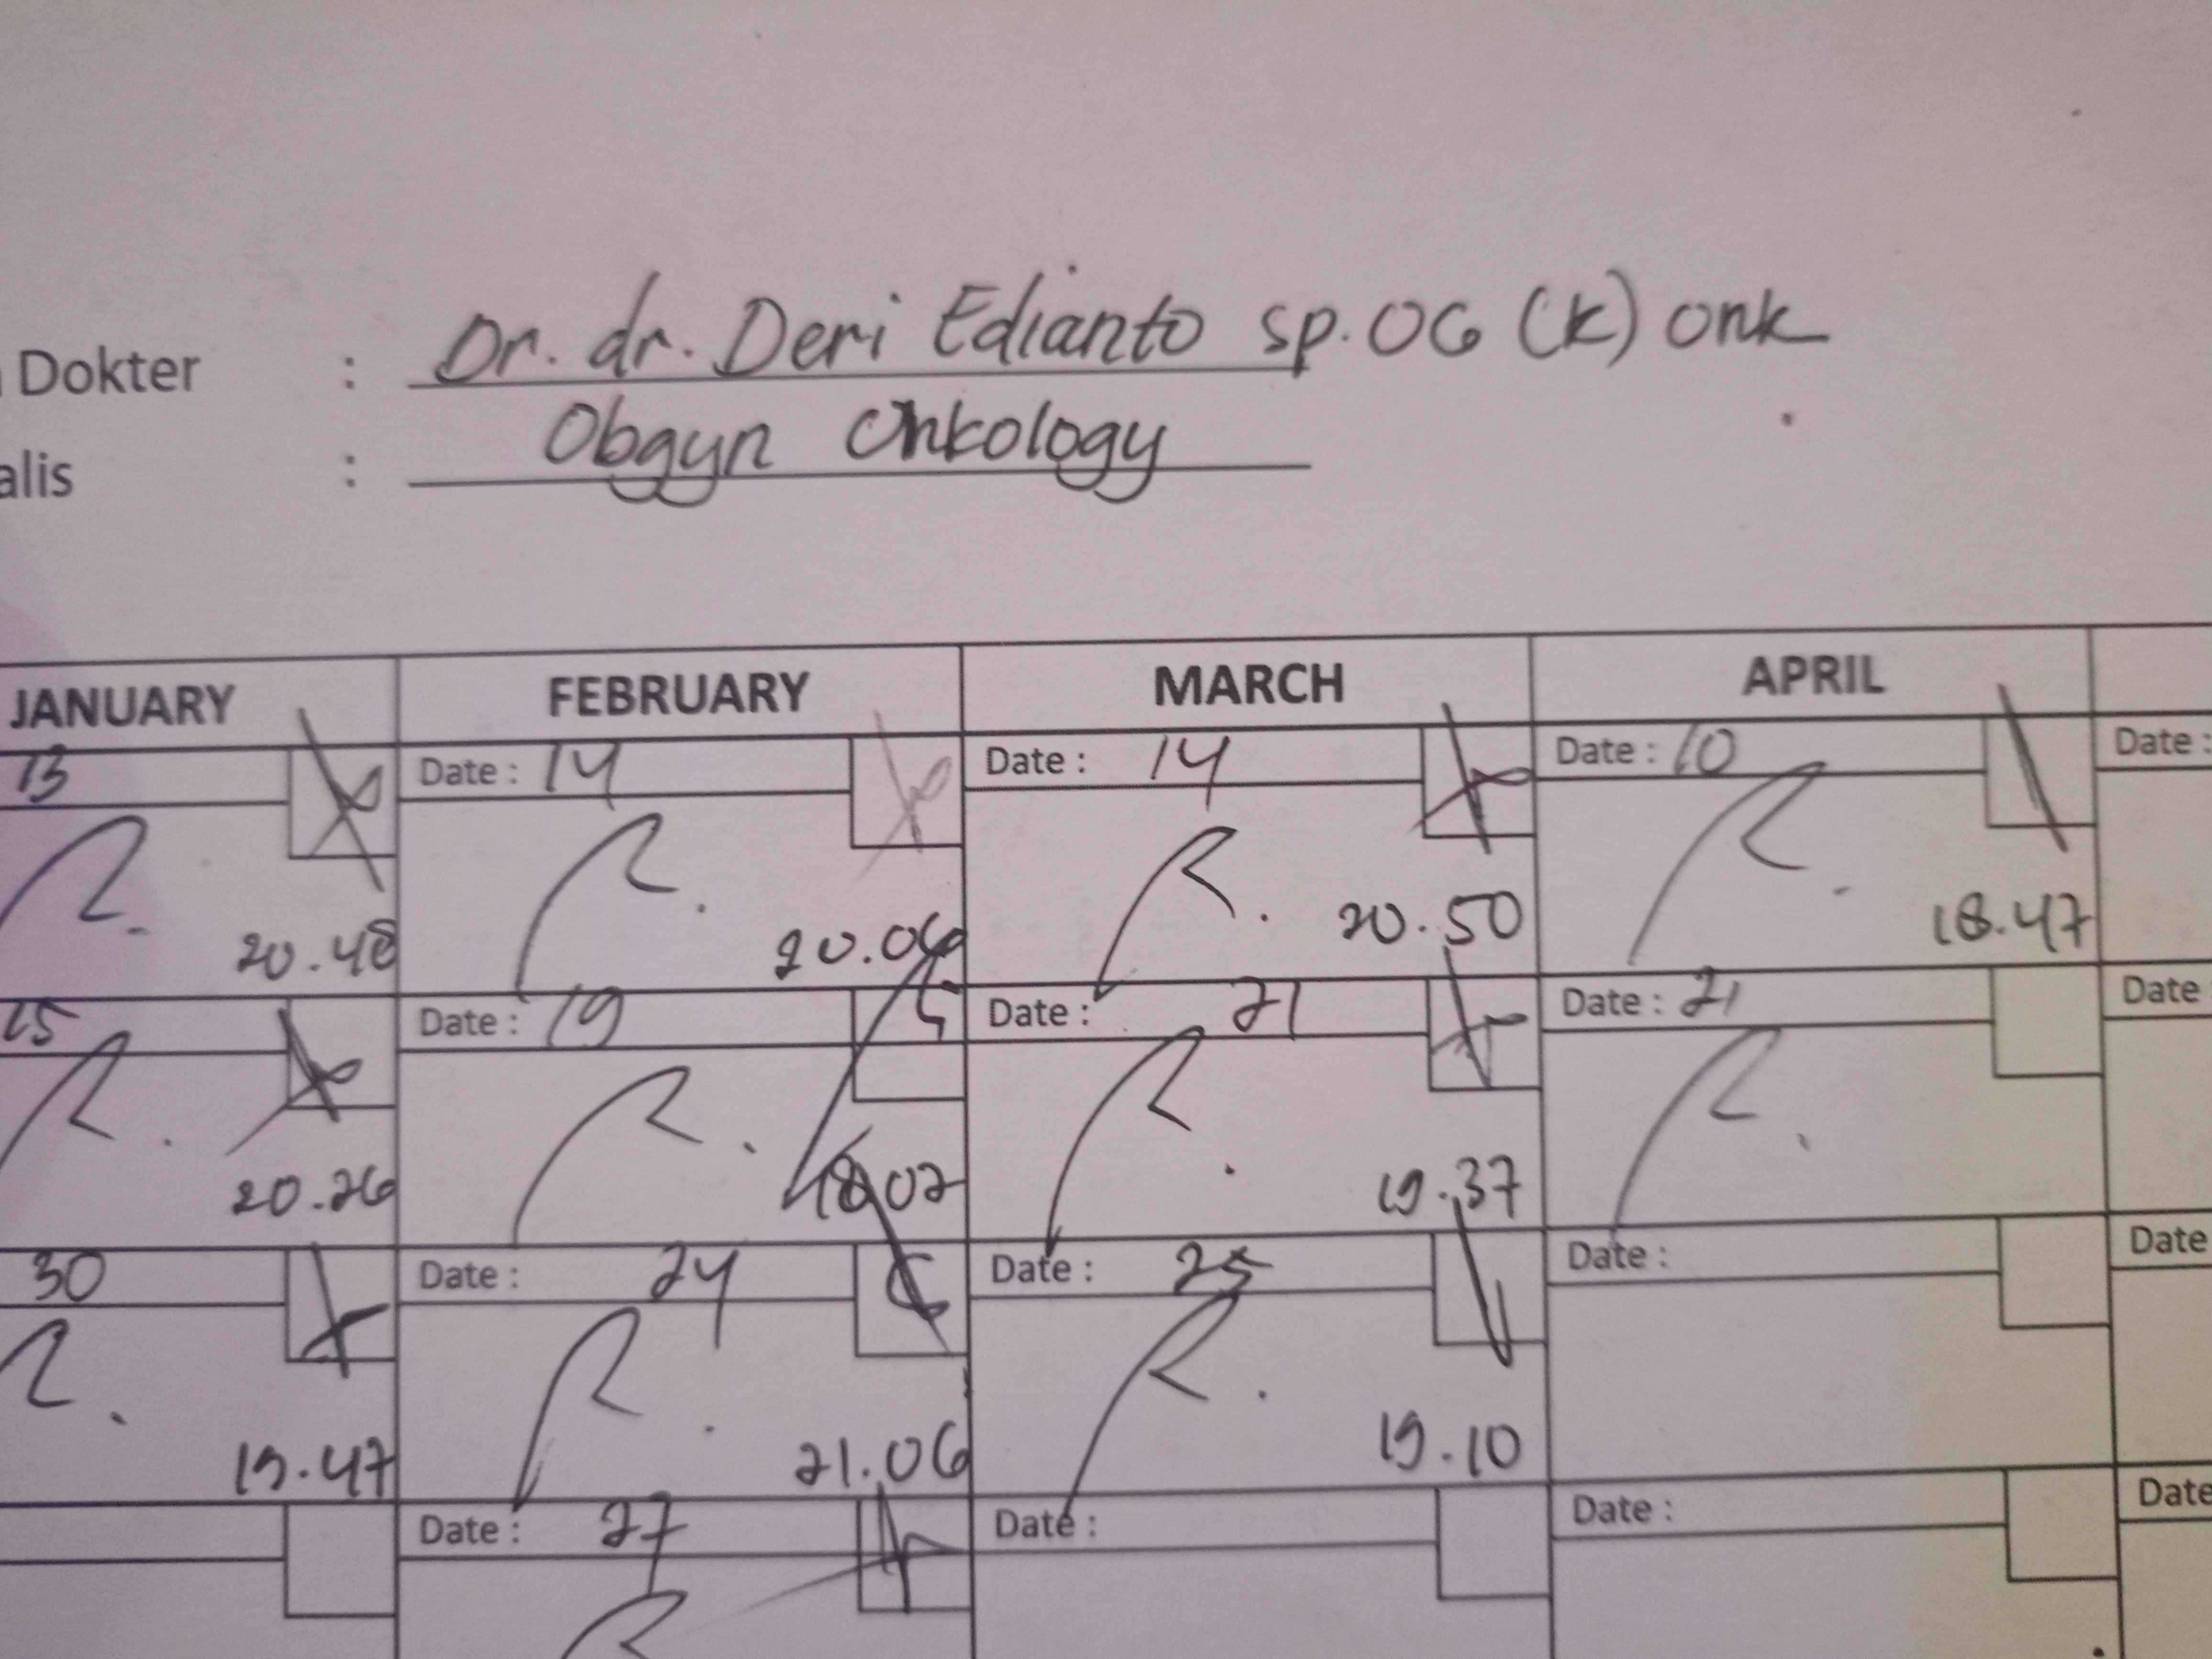 Dokter : Dr. dr. Deri Edianto sp. OG (K) Onk
alis : Obgyn Onkology
JANUARY FEBRUARY MARCH APRIL
13 Date : 14 Date : 14 Date : 10 Date :
20.48 20.06 20.50 18.47
Date : 19 Date : 21 Date : 21 Date
20.26 18.02 19.37
30 Date : 24 Date : 25 Date : Date
19.47 21.06 19.10
Date : 27 Date : Date : Date